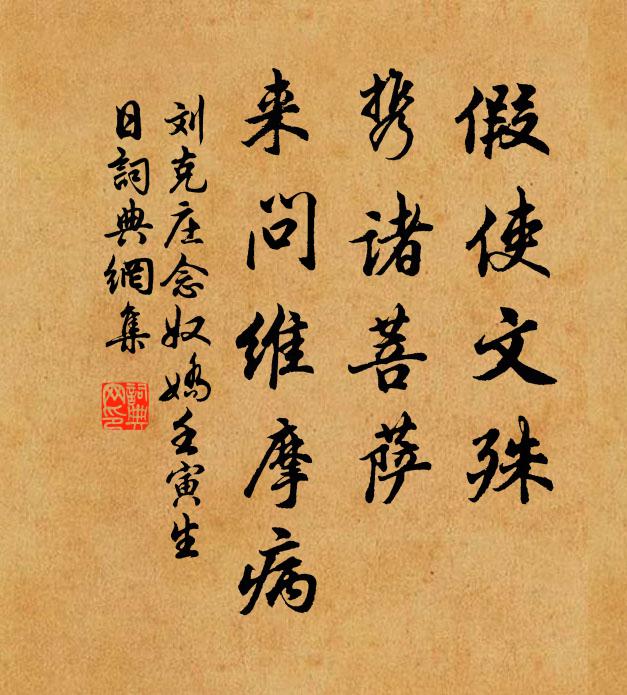 假使文殊
携诸菩萨
来问维摩病
刘克庄念奴娇壬寅生
日詞典網集
詞典
网印